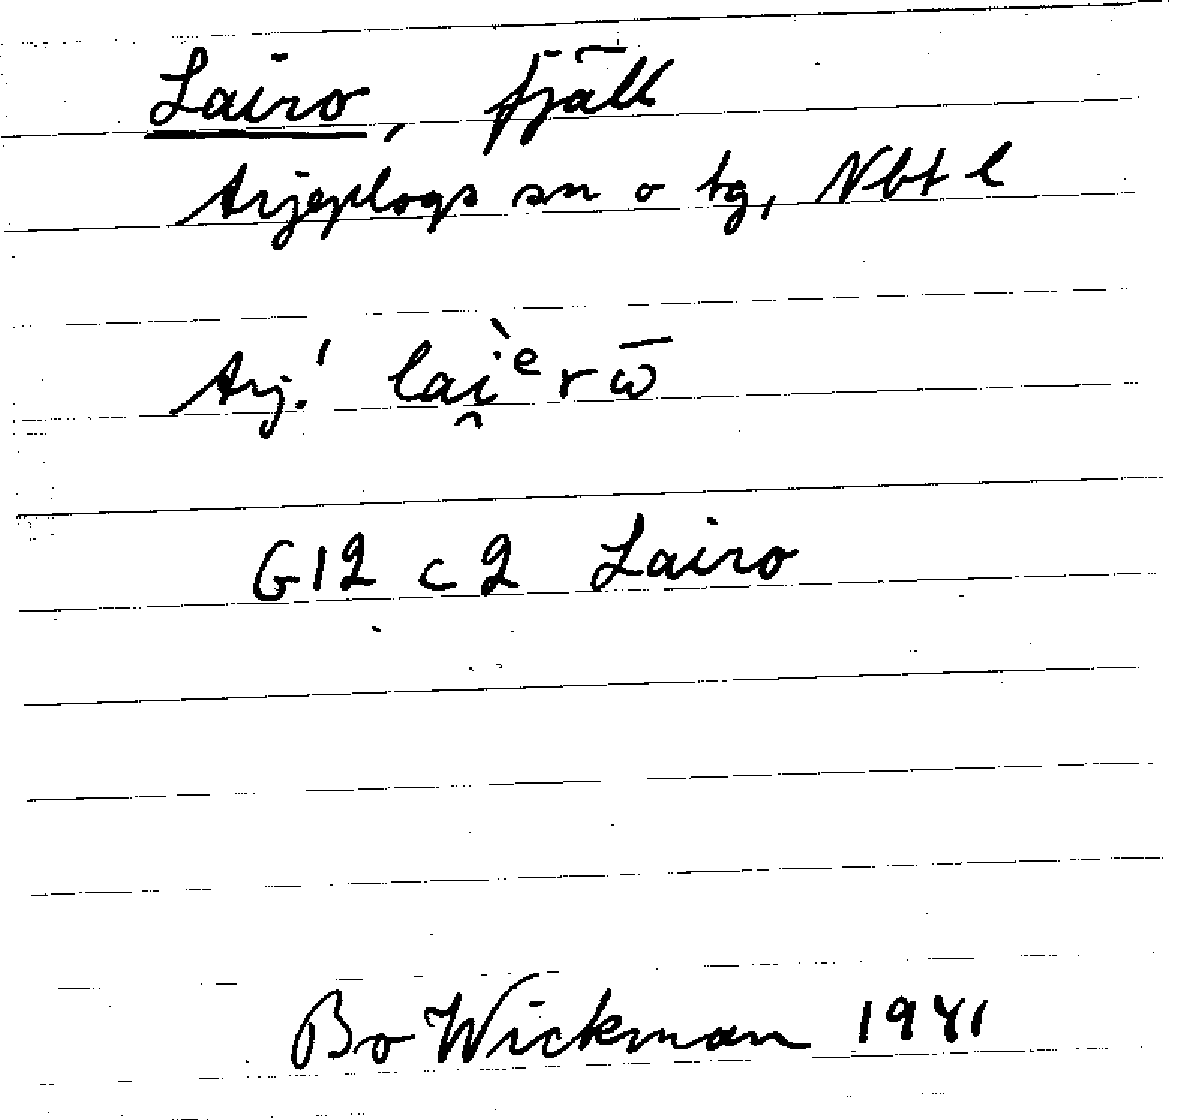 Lairo, fjäll
Arjeplogs sn o tg, Nbt l
Arj.! laì̯ᵉrω̄
G12 c 2 Lairo
Bo Wickman 1941